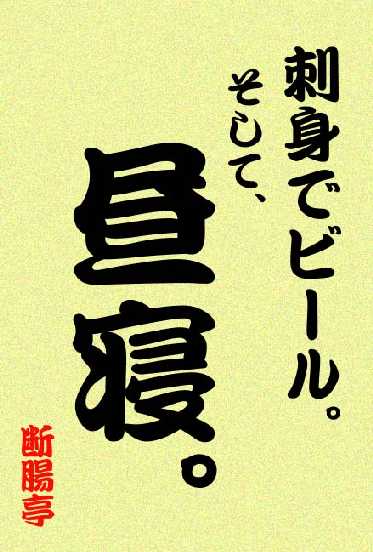 刺身でビール。
そして、
昼寝。
断腸亭